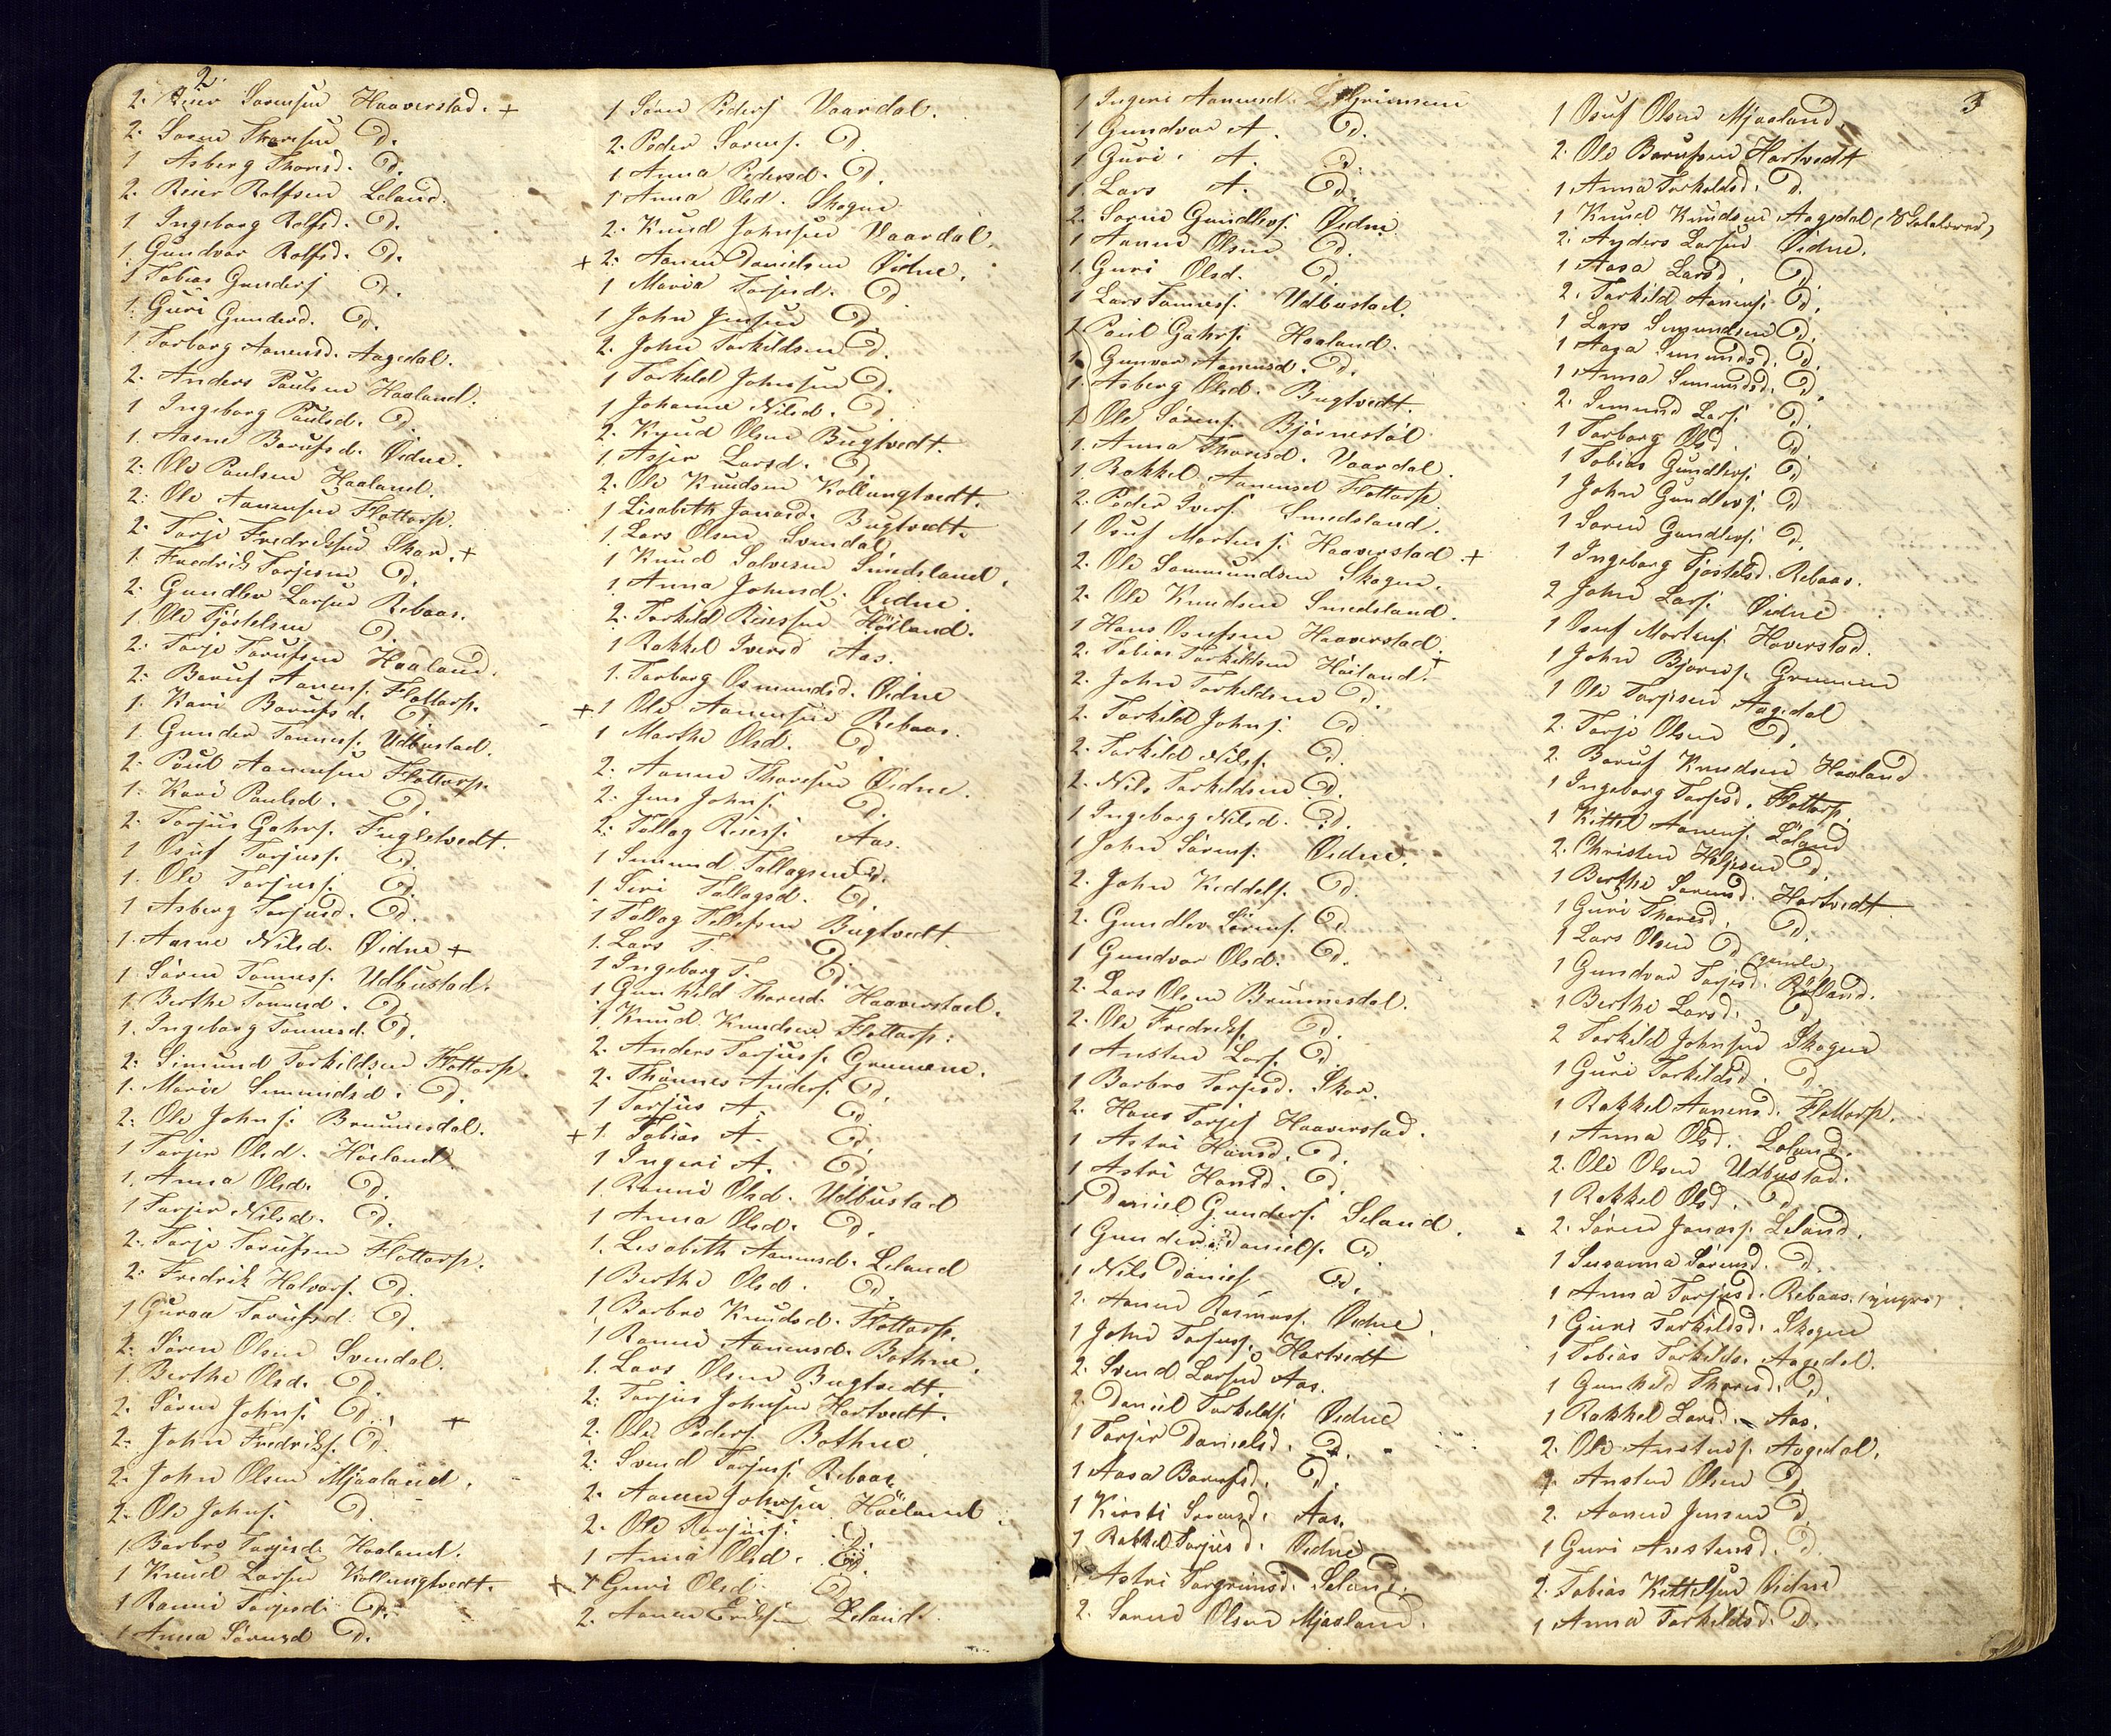 2.
2. Reier Sørensen Haaverstad. +
2. Søren Thoresen D.
1 Asberg Thoresd. D.
2. Reier Rolfsen Leland.
1 Ingeborg Rolfsd. D.
1 Gundvor Rolfsd. D.
1 Tobias Gunders. D.
1. Guri Gundersd. D.
1 Torborg Aanensd. Aagedal.
2. Anders Paulsen Haaland.
1 Ingeborg Paulsd. D.
1. Aasne Borufsd. Øidne.
2. Ole Paulsen Haaland.
2. Ole Aanensen Flottorp.
2. Torje Fredriksen Skar. +
1. Fredrik Torjesen D.
2. Gundlev Larsen Rebaas.
1. Ole Tjøstelsen D.
2. Torje Torufsen Haaland.
2. Boruf Aanens. Flottorp.
1. Kari Borufsd. D.
1. Gunder Tønness. Udbustad.
2. Poul Aanensen Flottorp.
1. Kari Paulsd. D.
2. Torjus Gahrs. Fuglestvedt.
1 Osuf Torjuss. D.
1. Ole Torjuss. D.
1 Asberg Torjusd. D.
1. Aasne Nilsd. Øidne +
1 Søren Tønness. Udbustad.
1. Berthe Tønnesd. D.
1. Ingeborg Tønnesd. D.
2. Simund Torkildsen Flottorp.
1. Marie Simundsd. D.
2. Ole Johns. Brunnesdal.
1 Torjer Olsd. Høiland.
1. Anna Olsd. D.
1 Torjer Nilsd. D.
2. Torje Torufsen Flottorp.
2. Fredrik Halvors. D.
1 Guroa Torufsd. D.
2. Søren Olsen Svendal.
1. Berthe Olsd. D.
2. Søren Johns. D. +
2. John Fredriks. D.
2. John Olsen Mjaaland.
2. Ole Johns. D.
1 Barbro Torjesd. Haaland.
1 Knud Larsen Kollungtvedt.
1 Ranni Torjesd. D.
1 Anna Sørensd D.
1 Søren Peders. Vaardal.
2. Peder Sørens. D.
1 Anna Pedersd. D.
1 Anna Olsd. Skogen
2. Knud Johnsen Vaardal.
+ 2. Aanen Danielsen Øidne.
1 Maria Torjesd. D.
1 John Jensen D.
2. John Torkildsen D.
1 Torkild Johnsen D.
1 Johanne Nilsd. D.
2. Knud Olsen Bugtvedt.
1. Asjer Larsd. D.
2. Ole Knudsen Kollungtvedt.
1 Lisabeth Jonasd. Bugtvedt.
1. Lars Olsen Svendal
1 Knud Salvesen Smedsland.
1. Anna Johnsd. Øidne.
2. Torkild Reiersen Høiland.
1 Rakkel Iversd Aas.
1. Torborg Osmundsd. Øidne
+ 1 Ole Aanensen Rebaas.
1 Marthe Olsd. D.
2. Aanen Thoresen Øidne.
2. Jens Johns. D.
2. Tollag Reiers. Aas.
1 Simund Tollagsen D.
1. Siri Tollagsd. D.
1 Tollag Tellefsen Bugtvedt.
1. Lars T. D.
1 Ingeborg T. D.
1 Gunhild Thoresd. Haaverstad.
1 Knud Knudsen Flottorp.
2. Anders Torjuss. Grummen.
2. Thønnes Anders. D.
1 Torjus A. D.
+ 1. Tobias A. D.
1 Ingeri A. D.
1. Ranni Olsd. Udbustad
1 Anna Olsd. D.
1. Lisabeth Aanensd. Leland
1 Berthe Olsd. D.
1. Barbro Knudsd. Flottorp.
1 Ranni Aanensd. Bothne.
1. Lars Olsen Bugtvedt.
2. Torjus Johnsen Hartvedt.
2. Ole Peders. Bothne
2. Svend Torjuss. Rebaas
2. Aanen Johnsen Høiland.
2. Ole Torjuss. D.
1 Anna Olsd. D.
+ 1 Guri Olsd. D.
2. Aanen Eriksen Leland.
1 Ingeri Aanensd. Grummen
1 Gundvor A. D.
1 Guri A. D.
1. Lars A. D.
2. Søren Gundlevs. Øidne
1 Aanen Olsen D.
1. Guri Olsd. D.
1 Lars Tønness. Udbustad.
1 Paul Gahrs. Haaland.
1 Gunvor Aanensd. D.
1. Asberg Olsd. Bugtvedt.
1 Ole Sørens. Bjørnestøl
1. Anna Thoresd. Vaardal.
1. Rakkel Aanensd Flottorp
2. Peder Ivers. Smedsland.
1 Osuf Mortens. Haaverstad. +
2. Ole Sammundsen Skogen.
2. Ole Knudsen Smedsland.
1 Hans Osufsen Haaverstad. +
2. Tobias Torkildsen Høiland.
2. John Torkildsen D.
2. Torkild Johns. D.
2. Torkild Nils. D.
2. Nils Torkildsen D.
1 Ingeborg Nilsd. D.
1 John Sørens. Øidne.
2. John Keddels. D.
2. Gundlev Sørens. D.
1 Gundvor Olsd. D.
2. Lars Olsen Brunnesdal.
2. Ole Fredriks. D.
1 Ansten Lars. D.
1 Barbro Torjesd. Skar.
2. Hans Torjes. Haaverstad.
1 Astri Hansd. D.
1 Astri Hansd. D.
1 Daniel Gunders. Leland.
1 Gunder Daniels. D.
1 Nils Daniels. D.
2. Aanen Rasmuss. Øidne.
1 John Torjuss. Hartvedt
2. Svend Larsen Aas.
2. Daniel Torkilds. Øidne
1 Torjer Danielsd. D.
1 Aasa Borufsd. D.
1 Kirsti Sørensd. Aas.
1 Rakkel Torjusd. Øidne
1 Astri Torgrimsd. Leland.
2. Søren Olsen Mjaaland.
3
1 Osuf Olsen Mjaaland.
2. Ole Borufsen Hartvedt
1 Anna Torkeldsd. D.
1 Knud Knudsen Aagedal
2. Anders Larsen Øidne.
1 Aasa Larsd. D.
2. Torkild Aanens. D.
1 Lars Simundsen D.
1 Aasa Simundsd. D.
1 Anna Simundsd. D.
2. Simund Lars. D.
1 Torborg Olsd. D.
1 Tobias Gundlevs. D
1 John Gundlevs. D
1 Søren Gundlevs. D.
1 Ingeborg Tjøstelsd. Rebaas.
2 John Lars. Øidne
1 Osuf Mortens. Haverstad.
1 John Bjørns. Grummen
1 Ole Torjesen Aagedal
2. Torje Olsen D.
2. Boruf Knudsen Haaland
1 Ingeborg Torjesd. Flottorp.
1 Kittel Aanens. Løland
2. Christen D.
1 Berthe Sørensd. Hartvedt
1 Guri Thoresd. D.
1 Lars Olsen D (gamle)
1 Gundvor Torjesd. Røiland.
1 Berthe Larsd. D
2 Torkild Johnsen Skogen
1 Guri Torkildsd. D
1 Rakkel Aanensd. Flottorp.
1 Anna Olsd. Leland.
2. Ole Olsen Udbustad.
1 Rakkel Olsd. D
2. Søren Jonass. Leland.
1 Susanna Sørensd. D.
1 Anna Torjesd. Rebaas. (yngre)
1 Guri Torkildsd. Skogen
1 Tobias Torkilds. Aagedal.
1 Gunhild Thoresd. D.
1 Rakkel Larsd. Aas.
2. Ole Anstens. Aagedal.
1. Ansten Olsen D.
2. Aanen Jensen D.
1 Guri Anstensd. D.
2. Tobias Kittelsen Øidne
1 Anna Torkildsd. D.